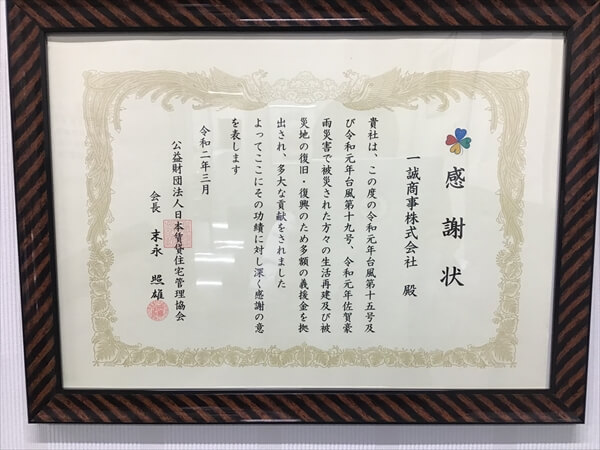 感謝状
一誠商事株式会社 殿
貴社は、この度の令和元年台風第十五号及
び令和元年台風第十九号、令和元年佐賀豪
雨災害で被災された方々の生活再建及び被
災地の復旧・復興のため多額の義援金を拠
出され、多大な貢献をされました
よってここにその功績に対し深く感謝の意
を表します
令和二年三月
公益財団法人日本賃貸住宅管理協会
会長 末永 照雄